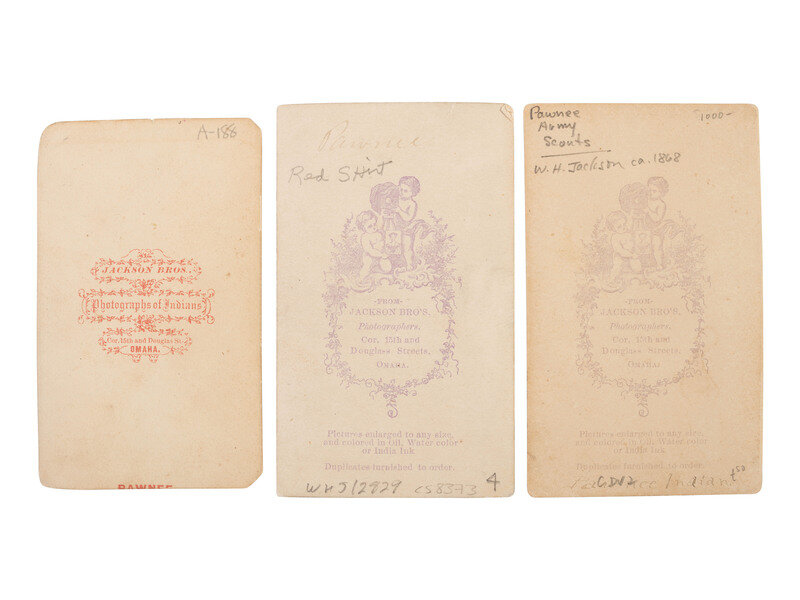 A-188
JACKSON BROS.,
Photographs of Indians
Cor. 15th and Douglas St.
OMAHA.
PAWNEE
Pawnee
Red Shirt
FROM
JACKSON BRO'S.
Photographers,
Cor. 15th and
Douglass Streets,
OMAHA.
Pictures enlarged to any size,
and colored in Oil, Water color
or India Ink
Duplicates furnished to order.
WHJ/2929 CS8373 4
Pawnee
Army
Scouts
W. H. Jackson ca. 1868
1000-
FROM
JACKSON BRO'S.
Photographers,
Cor. 15th and
Douglass Streets,
OMAHA.
Pictures enlarged to any size,
and colored in Oil, Water color
or India Ink
Duplicates furnished to order.
Indian